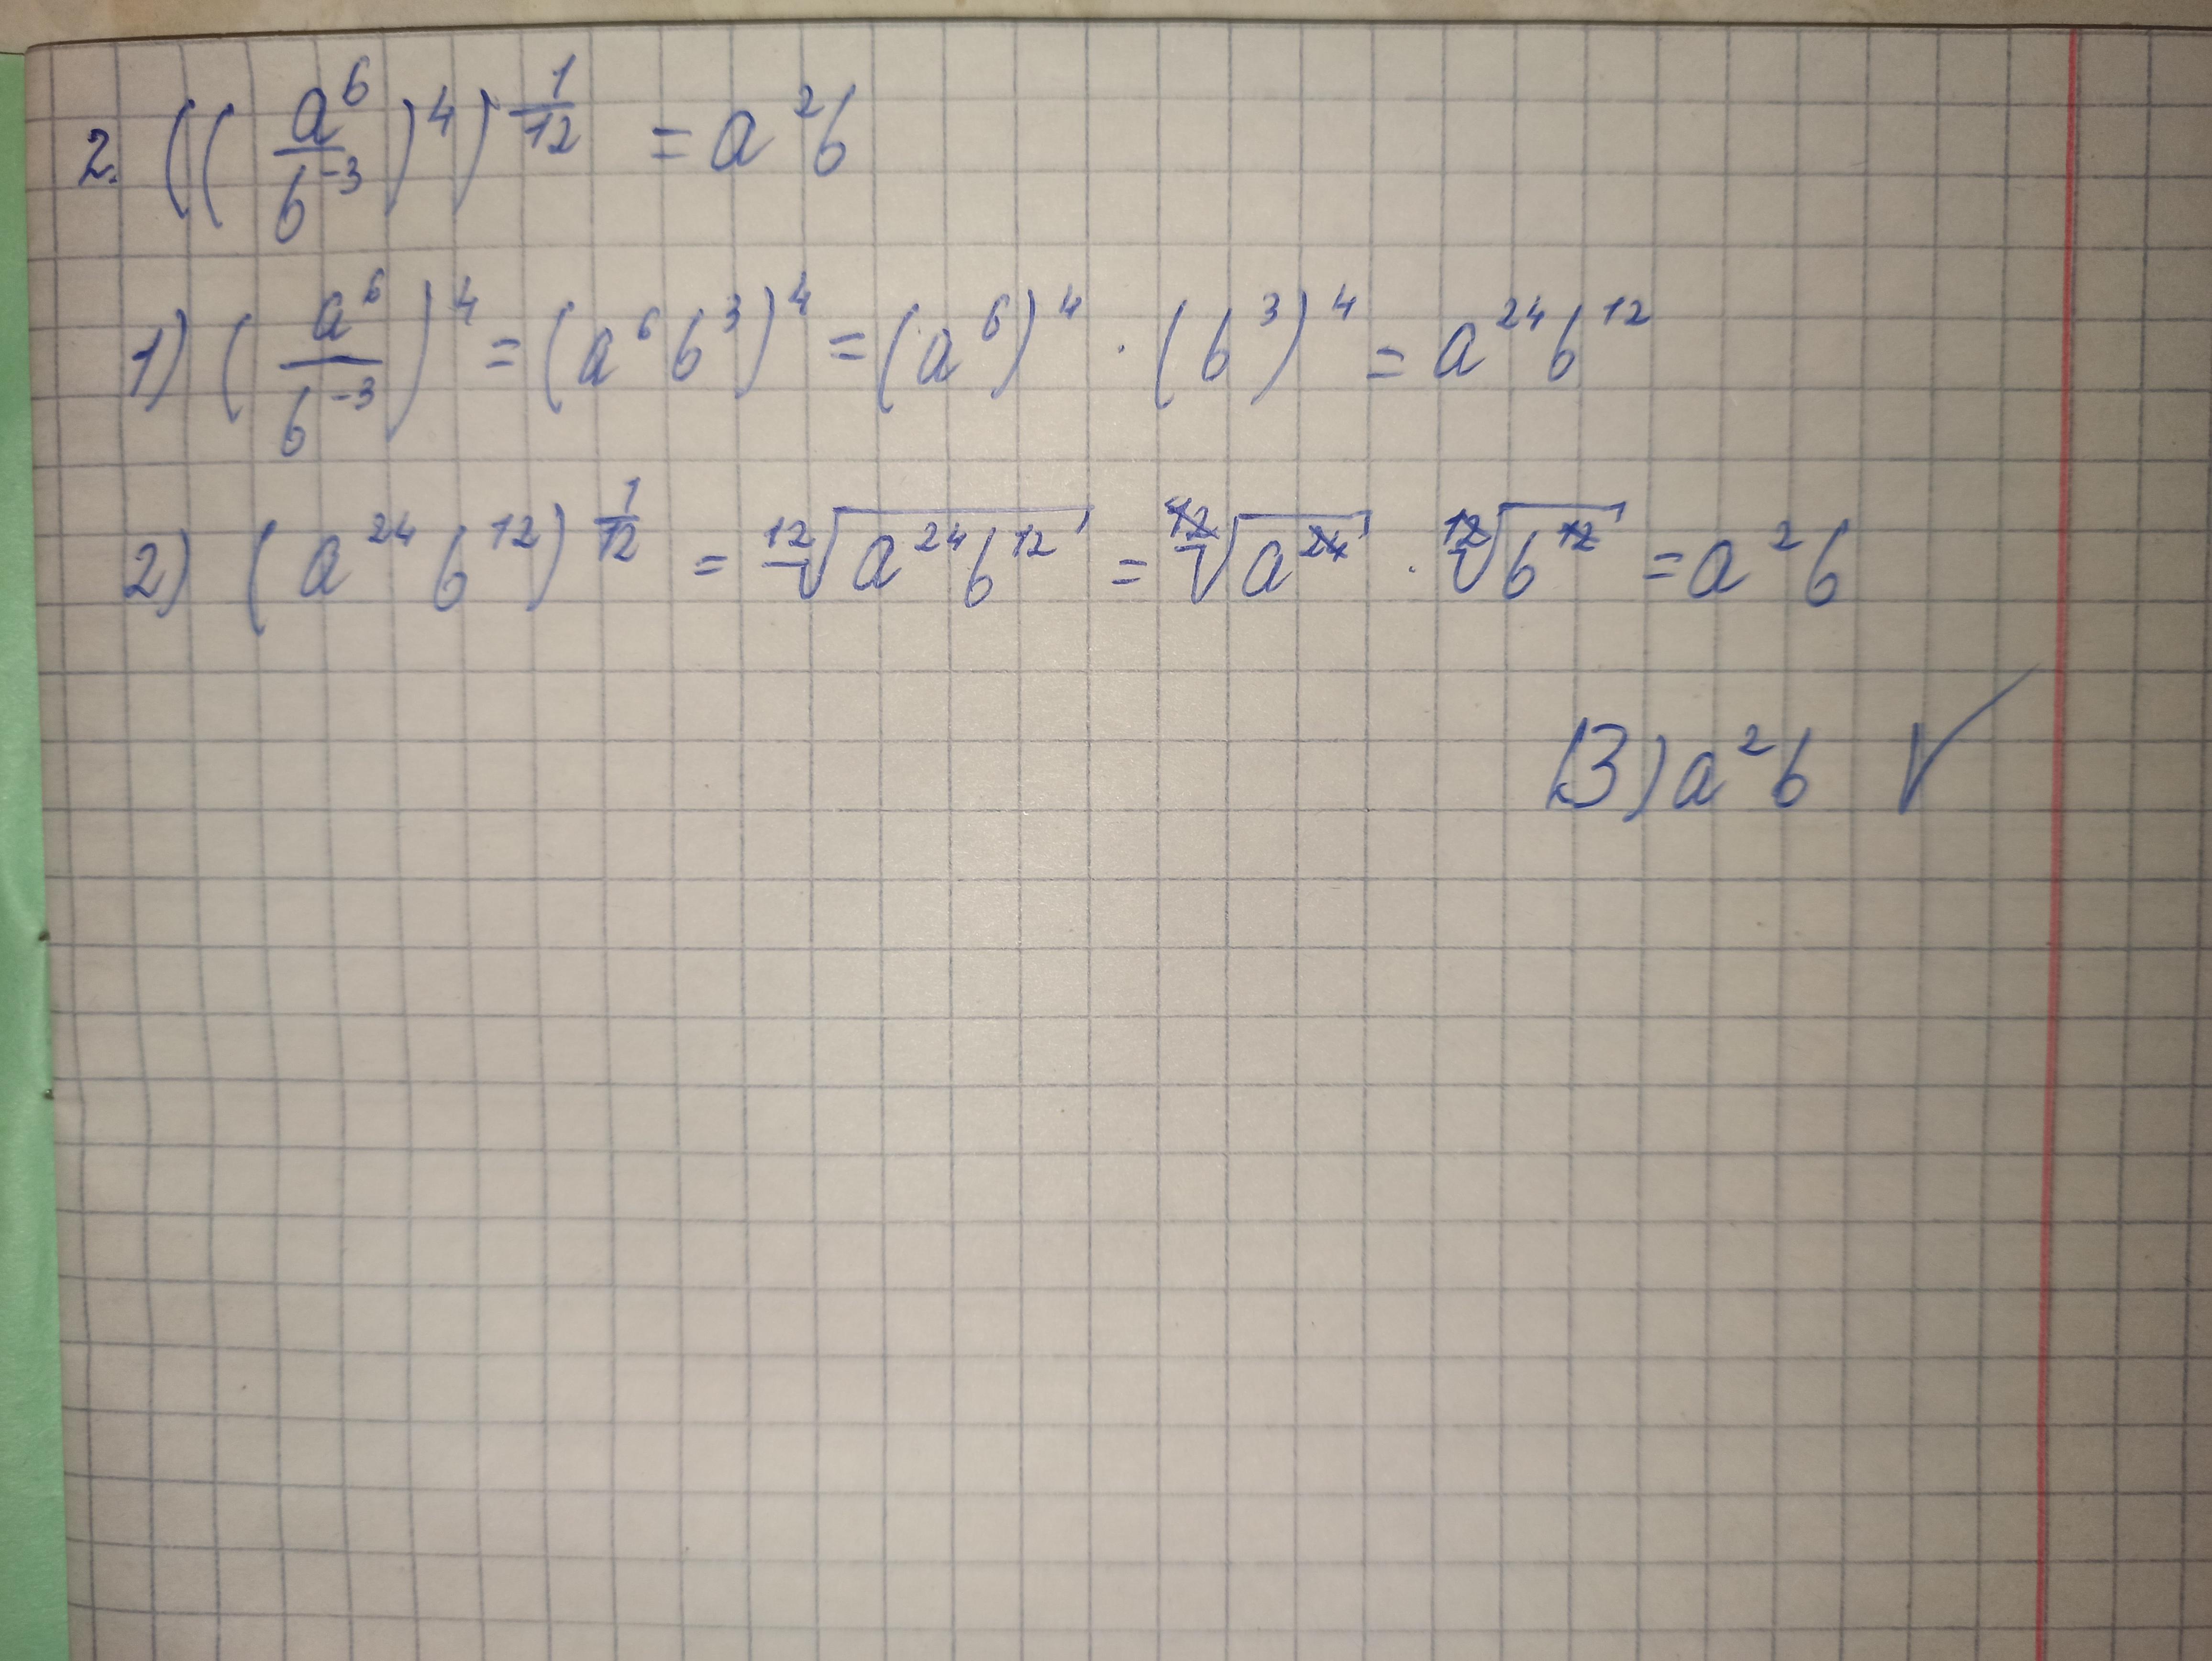 2. ((a⁶/b⁻³)⁴)^(1/12) = a²b
1) (a⁶/b⁻³)⁴ = (a⁶b³)⁴ = (a⁶)⁴ · (b³)⁴ = a²⁴b¹²
2) (a²⁴b¹²)^(1/12) = ¹²√(a²⁴b¹²) = ¹²√(a²⁴) · ¹²√(b¹²) = a²b
(3) a²b ✓